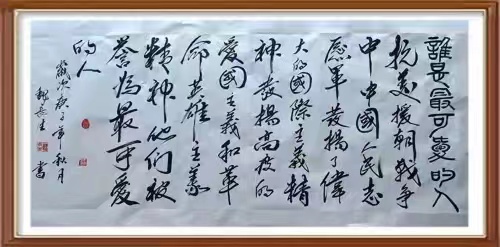 誰是最可愛的人
抗美援朝戰争
中中國人民志
愿軍發揚了偉
大的國際主義精
神發揚高度的
愛國主義和革
命英雄主義
精神他們被
譽為最可愛
的人
歲次庚子年秋月
書